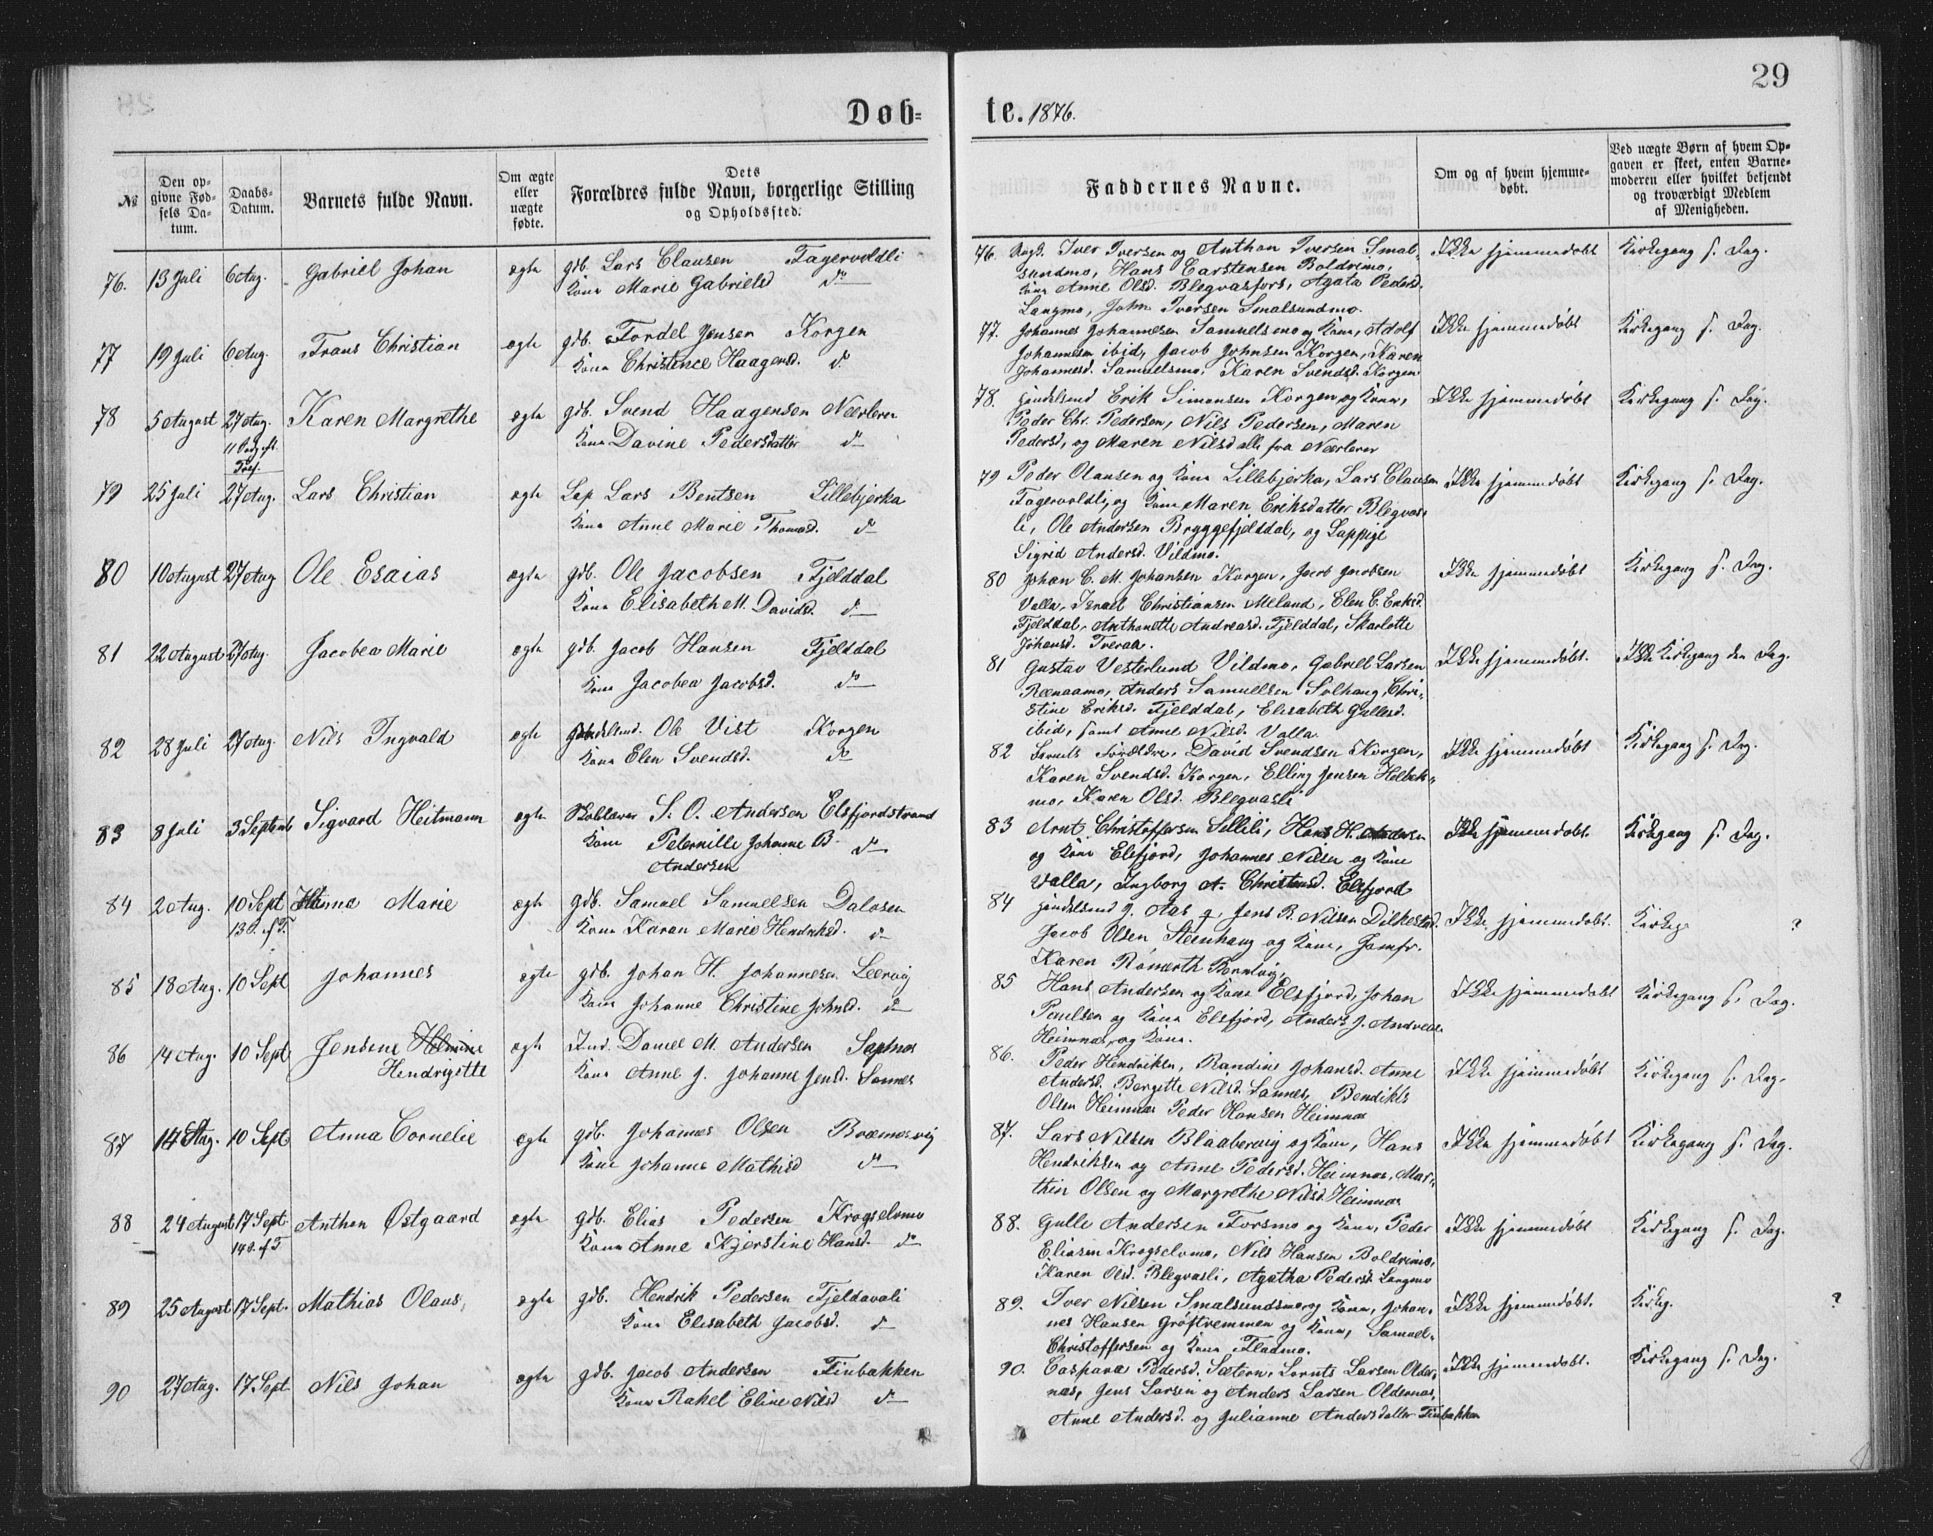 29
Døb-
te. 1876.
№
Den opgivne Fødsels Datum.
Daabs-Datum.
Barnets fulde Navn.
Om ægte eller uægte fødte.
Dets Forældres fulde Navn, borgerlige Stilling og Opholdssted.
Faddernes Navne.
Om og af hvem hjemmedøbt.
Ved uægte Børn af hvem Opgaven er skeet, enten Barnemoderen eller hvilket bekjendt og troværdigt Medlem af Menigheden.
76. 13 Juli 6 Aug. Gabriel Johan ægte gdb. Lars Clausen Fagervoldli
Kone Marie Gabrielsd do
76. Iver Iversen og Anthon Iversen Smal-
sundmo, Hans Carstensen Boldremo,
Kone Anne Olsd. Blegvasfors, Agata Pedersd.
Langmo, John Iversen Smalsundmo.
Ikke hjemmedøbt Kirkegang s. Dag.
77 19 Juli 6 Aug. Frans Christian ægte gdb. Fordel Jensen Korgen
Kone Christence Haagensd. do
77. Johannes Johannesen Samuelsmo og Kone, Adolf
Johannesen ibid, Jacob Johnsen Korgen, Karen
Johannesd. Samuelsmo, Karen Svendsd. Korgen.
Ikke hjemmedøbt Kirkegang s. Dag.
78 5 August 27 Aug. Karen Margrethe ægte gdb. Svend Haagensen Nærlever
11 Tref.
Kone Davine Pedersdatter do
78. Erik Simonsen Korgen og Kone,
Peder Chr. Pedersen, Nils Pedersen, Maren
Pedersd, og Maren Nilsd alle fra Nærlever
Ikke hjemmedøbt Kirkegang s. Dag.
79 25 Juli 27 Aug. Lars Christian ægte Lap Lars Bentsen Lillebjerka
Kone Anne Marie Thomasd. do
79 Peder Olausen og Kone Lillebjerka, Lars Clausen
Fagervoldli, og Kone Maren Eriksdatter Blegvas-
li, Ole Andersen Bryggefjelddal, og Lappige
Sigrid Andersd. Vildmo.
Ikke hjemmedøbt Kirkegang s. Dag.
80 10 August 27 Aug Ole Esaias ægte gdb. Ole Jacobsen Fjelddal
Kone Elisabeth M. Davidsd. do
80 Johan C. M. Johansen Korgen, Jacob Jacobsen
Valla, Israel Christiansen Meland, Elen C. Eriksd.
Fjelddal, Anthonette Andreasd. Fjelddal, Skarlotte
Johansd. Tveraa.
Ikke hjemmedøbt Kirkegang s. Dag.
81 22 August 27 Aug. Jacobea Marie ægte gdb. Jacob Hansen Fjelddal
Kone Jacobea Jacobsd. do
81 Gustav Vesterlund Vildmo, Gabriel Larsen
Renaamo, Anders Samuelsen Solhaug, Chri-
stine Eriksd. Fjelddal, Elisabeth Gullesd.
ibid, samt Anne Nilsd. Valla.
Ikke hjemmedøbt. Ikke Kirkegang den Dag.
82 28 Juli 27 Aug. Nils Ingvald ægte Ole Vist Korgen
Kone Elen Svendsd. do
82 David Svendsen Korgen,
Karen Svendsd. Korgen, Elling Jensen Holbek-
mo, Karen Olsd. Blegvasli
Ikke hjemmedøbt Kirkegang s. Dag.
83 8 Juli 3 Septemb Sigvard Heitmann ægte S. O. Andersen Elsfjordstrand
Kone Peternille Johanne B. do
Andersen
83 Arnt Christoffersen Sellili, Hans H. Andersen
og Kone Elsfjord, Johannes Nilsen og Kone
Valla, Ingborg A. Christensd. Elsfjord
Ikke hjemmedøbt. Kirkegang s. Dag.
84 2 Aug. 10 Sept Hanna Marie ægte gdb. Samuel Samuelsen Dalosen
13 S. ef T.
Kone Karan Marie Hendriksd. do
84 J. Aas g Jens R. Nilsen Dilkestad
Jacob Olsen Steenhaug og Kone, Jomfr.
Karen Rönærth
Ikke hjemmedøbt. Kirkeg. ?
85 18 Aug. 10 Sept Johannes ægte gdb. Johan H. Johannesen Leervig
Kone Johanne Christine Johnsd. do
85 Hans Andersen og Kone Elsfjord, Johan
Paulsen og Kone Elsfjord, Anders J. Andreas
Heimnæs, og Kone.
Ikke hjemmedøbt Kirkegang s. Dag.
86 14 Aug. 10 Sept Jensine Helmine ægte Ind. Daniel M. Andersen
Hendryette
Kone Anne J. Johanne Jensd. Sannes
86. Peder Hendriksen, Randine Johansd. Anne
Andersd. Bergitte Nilsd. Sannes, Bendikts
Olsen Heimnæs Peder Hansen Heimnæs
Ikke hjemmedøbt Kirkegang s. Dag.
87 14 Aug. 10 Sept Anna Cornelie ægte gdb. Johannes Olsen Bræmosvig
Kone Johanne Mathisd do
87. Lars Nilsen Blaabærvig og Kone, Hans
Hendriksen og Anne Pedersd. Heimnæs, Mar-
thin Olsen og Margrethe Nilsd. Heimnæs
Ikke hjemmedøbt Kirkegang s. Dag.
88 24 August 17 Sept Anthon Østgaard ægte gdb. Elias Pedersen Krogselvmo
14 S. ef T
Kone Anne Kjerstine Hansd. do
88. Gulle Andersen Forsmo og Kone, Peder
Eliasen Krogselvmo, Nils Hansen Boldremo,
Karen Olsd. Blegvasli, Agatha Pedersd. Langmo
Ikke hjemmedøbt Kirkegang s. Dag.
89 25 August 17 Sept. Mathias Olaus, ægte gdb. Hendrik Pedersen Fjeldavali
Kone Elisabeth Jacobsd. do
89. Iver Nilsen Smalsundmo og Kone, Johan-
nes Hansen Grøftremmen og Kone, Samuel
Christoffersen og Kone Fladmo.
Ikke hjemmedøbt. Kirkeg. ?
90 27 Aug. 17 Sept Nils Johan ægte gdb. Jacob Andersen Finbakken
Kone Rakel Eline Nilsd do
90. Caspara Pedersd. Sætern, Lornts Larsen Older-
næs, Jens Larsen og Anders Larsen Oldernæs,
Anne Andersd. og Julianne Andersdatter Finbakken
Ikke hjemmedøbt. Kirkegang s. Dag.